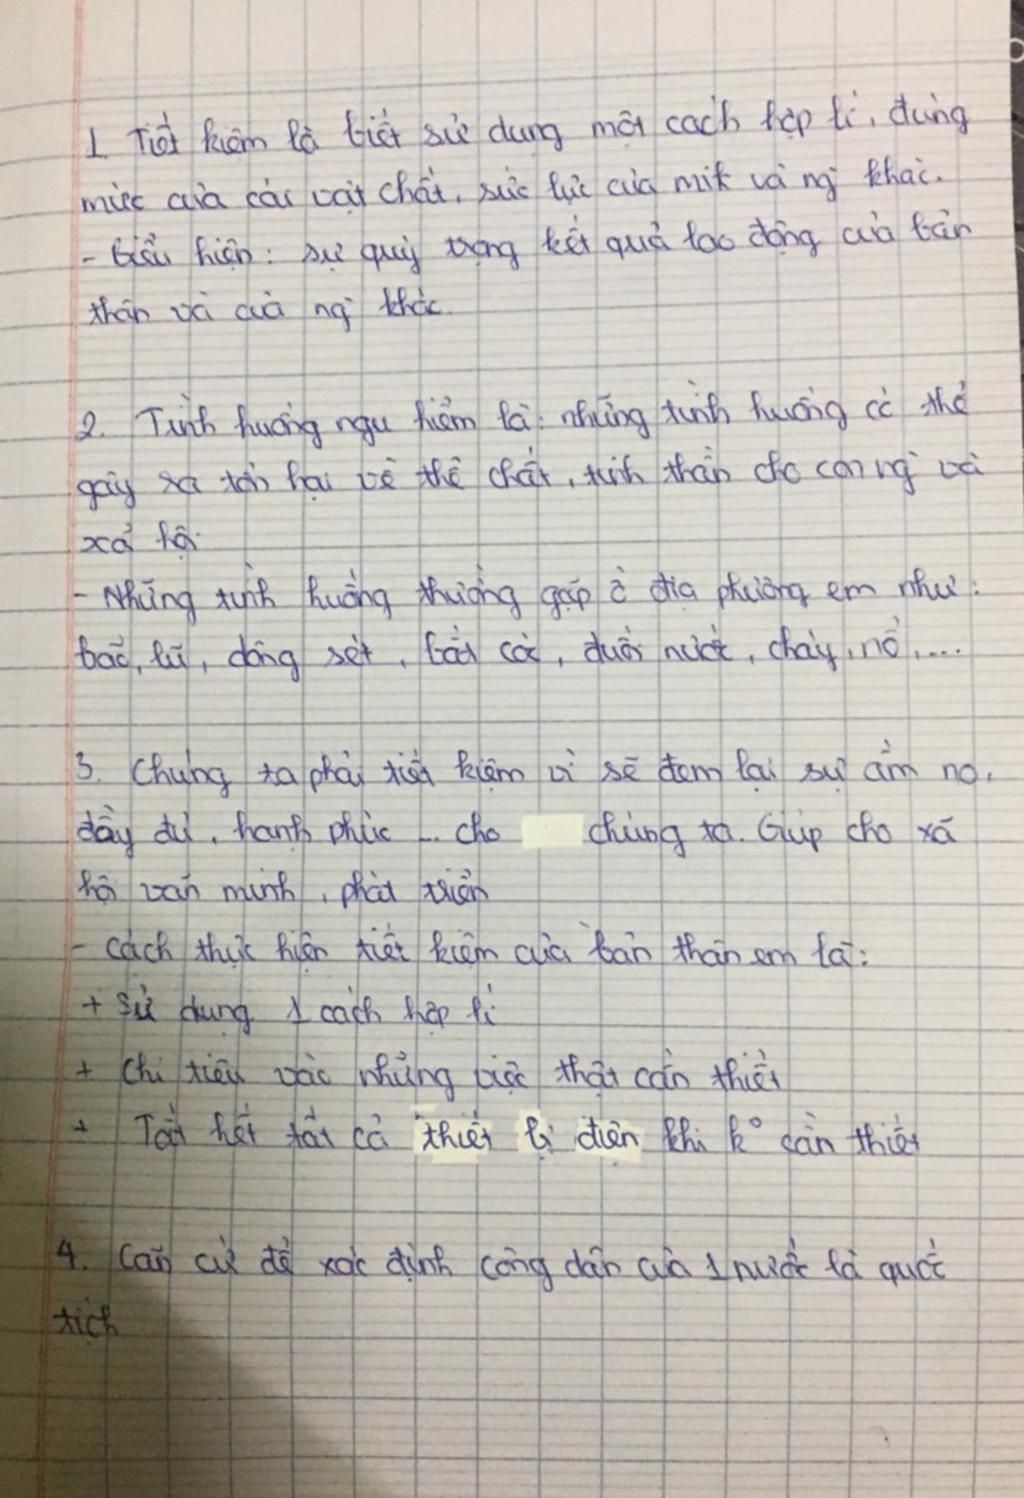 1. Tiết kiệm là biết sử dụng một cách hợp lí, đúng
mức của cải vật chất, sức lực của mik và ng khác.
- Biểu hiện: sự quý trọng kết quả lao động của bản
thân và của ng khác.
2. Tình huống nguy hiểm là: những tình huống có thể
gây ra tổn hại về thể chất, tinh thần cho con ng và
xã hội.
- Những tình huống thường gặp ở địa phương em như:
bão, lũ, dông sét, bắt cóc, đuối nước, cháy, nổ,...
3. Chúng ta phải tiết kiệm vì sẽ đem lại sự ấm no,
đầy đủ, hạnh phúc ... cho chúng ta. Giúp cho xã
hội văn minh, phát triển
- Cách thực hiện tiết kiệm của bản thân em là:
+ Sử dụng 1 cách hợp lí
+ Chi tiêu vào những việc thật cần thiết
+ Tắt hết tất cả thiết bị điện khi k° cần thiết
4. Căn cứ để xác định công dân của 1 nước là quốc
tịch